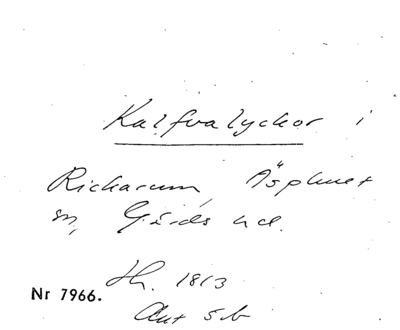 Kalfvalyckor i
Rickarum, Äsphuet
sn, Gärds hd.
Nr 7966.
1813
Akt 5b